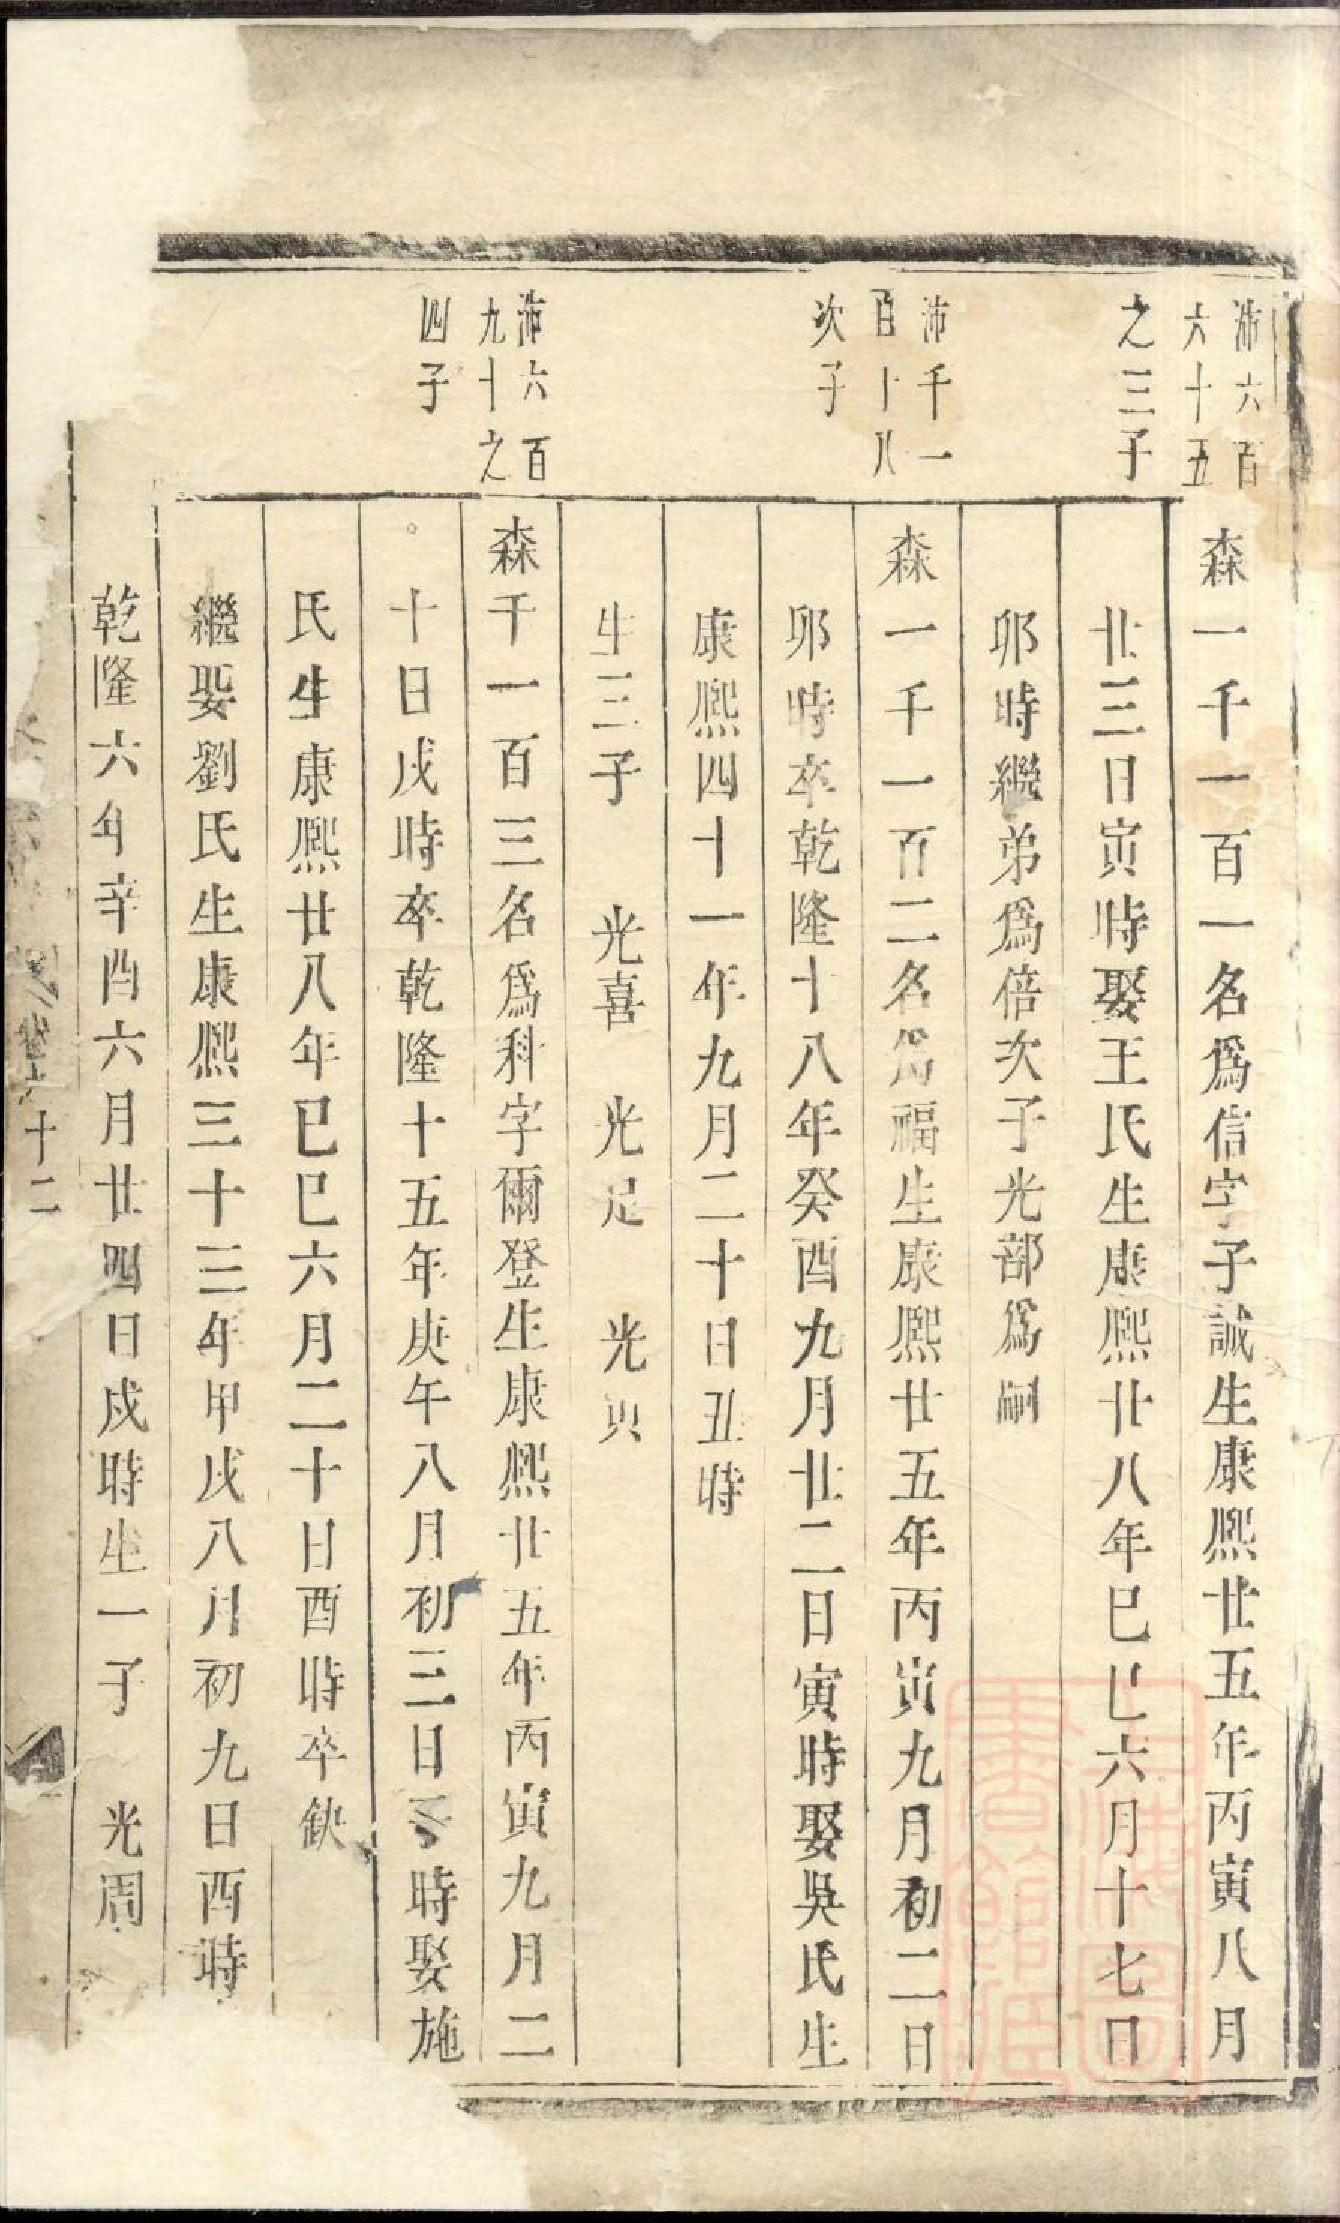 沛六百
六十五
之三子
森一千一百一名爲信字子誠生康熙廿五年丙寅八月
廿三日寅時娶王氏生康熙廿八年巳巳六月十七日
卯時繼弟爲倍次子光部爲嗣
沛千一
百十八
次子
森一千一百二名爲福生康熙廿五年丙寅九月初二日
卯時卒乾隆十八年癸酉九月廿二日寅時娶吳氏生
康熙四十一年九月二十日丑時
生三子 光喜 光足 光寅
沛六百
九十之
四子
森千一百三名爲科字爾登生康熙廿五年丙寅九月二
十日戌時卒乾隆十五年庚午八月初三日時娶施
氏生康熙廿八年巳巳六月二十日酉時卒缺
繼娶劉氏生康熙三十三年甲戌八月初九日酉時
乾隆六年辛酉六月廿四日戌時生一子 光周
十二